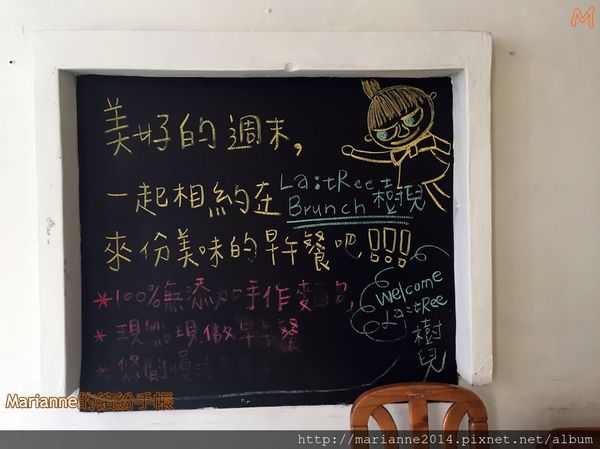 M
美好的週末,
一起相約在 La:tRee Brunch 樹兒
來份美味的早午餐吧!!!
*100%無添加手作麵包,
*現點現做早午餐
*悠閒慢
Welcome
La:tRee
樹
兒
Marianne的繽紛手帳
http://marianne2014.pixnet.net/album